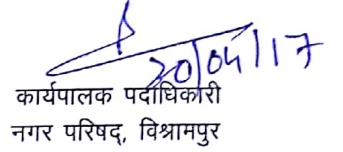 20/04/17
कार्यपालक पदाधिकारी
नगर परिषद्, विश्रामपुर